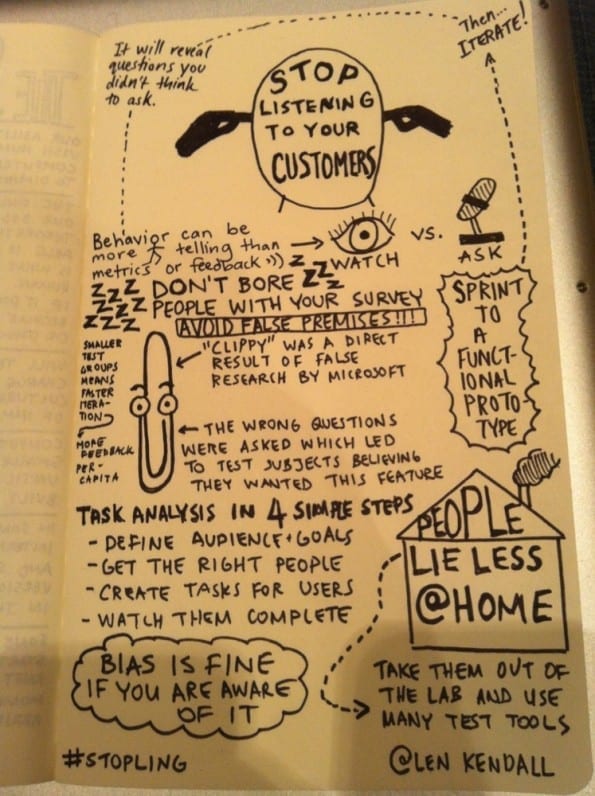 It will reveal
questions you
didn't think
to ask.
Then...
ITERATE!
STOP
LISTENING
TO YOUR
CUSTOMERS
Behavior can be
more telling than
metrics or feedback
WATCH
vs.
ASK
ZZZ DON'T BORE ZZZ
ZZZ PEOPLE WITH YOUR SURVEY
ZZZ
AVOID FALSE PREMISES!!!
"CLIPPY" WAS A DIRECT
RESULT OF FALSE
RESEARCH BY MICROSOFT
SMALLER
TEST
GROUPS
MEANS
FASTER
ITERA-
TION
MORE
FEEDBACK
PER-
CAPITA
THE WRONG QUESTIONS
WERE ASKED WHICH LED
TO TEST SUBJECTS BELIEVING
THEY WANTED THIS FEATURE
SPRINT
TO
A
FUNCT-
IONAL
PROTO-
TYPE
TASK ANALYSIS IN 4 SIMPLE STEPS
- DEFINE AUDIENCE + GOALS
- GET THE RIGHT PEOPLE
- CREATE TASKS FOR USERS
- WATCH THEM COMPLETE
PEOPLE
LIE LESS
@HOME
BIAS IS FINE
IF YOU ARE AWARE
OF IT
TAKE THEM OUT OF
THE LAB AND USE
MANY TEST TOOLS
#STOPLING
@LEN KENDALL